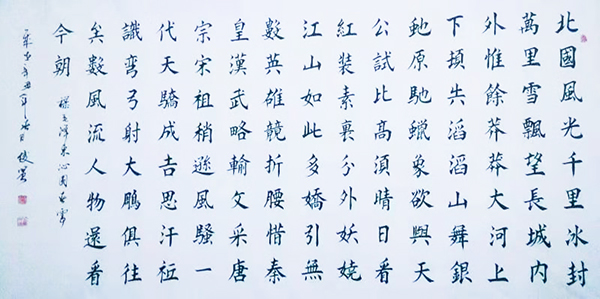 北國風光千里冰封
萬里雪飄望長城內
外惟餘莽莽大河上
下頓失滔滔山舞銀
虵原馳蠟象欲與天
公試比高須晴日看
紅裝素裹分外妖嬈
江山如此多嬌引無
數英雄競折腰惜秦
皇漢武略輸文采唐
宗宋祖稍遜風騷一
代天驕成吉思汗祗
識彎弓射大鵰俱往
矣數風流人物還看
今朝
毛澤東沁園春雪